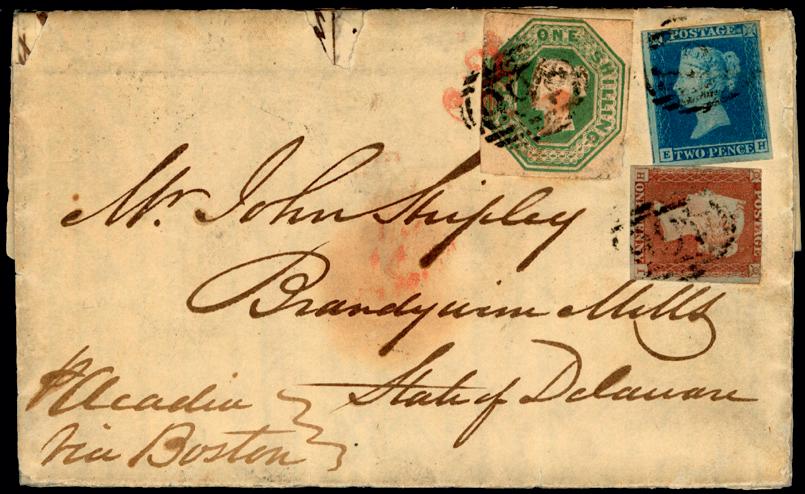 ONE SHILLING
POSTAGE
E TWO PENCE H
POSTAGE
ONE PENNY
Mr. John Shipley
Brandywine Mills
State of Delaware
p Acadia
via Boston